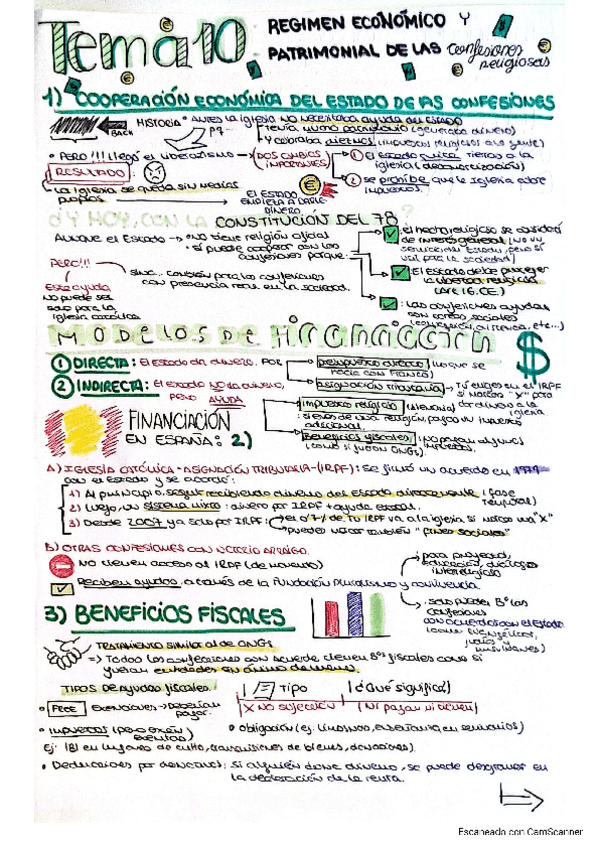 Tema 10
REGIMEN ECONÓMICO Y
PATRIMONIAL DE LAS confesiones
religiosas
1) COOPERACIÓN ECONÓMICA DEL ESTADO DE LAS CONFESIONES
BACK HISTORIA • ANTES la iglesia NO necesitaba ayuda del ESTADO
P7 tenía mucho patrimonio (generaba dinero)
Y cobraba diezmos (impuestos religiosos a la gente)
• PERO!!! llegó el LIBERALISMO → DOS CAMBIOS IMPORTANTES
① El estado quita tierras a la iglesia (desamortización)
② se prohíbe que la iglesia cobre impuestos.
RESULTADO
La iglesia se queda sin medios propios
EL ESTADO EMPIEZA A DARLE DINERO
¿Y HOY, CON LA CONSTITUCIÓN DEL 78?
Aunque el Estado → • No tiene religión oficial
• Sí puede cooperar con las confesiones porque:
: el hecho religioso se considera de interés general (no un servicio del Estado, pero sí útil para la sociedad)
: El Estado debe proteger la libertad religiosa (Art 16. CE)
: Las confesiones ayudan con cosas sociales
PERO!!!
Esta ayuda no puede ser solo para la iglesia católica
sino... también para las confesiones con presencia real en la sociedad.
MODELOS DE Financiación
① DIRECTA: El estado da dinero. POR
presupuesto directo (lo que se hacía con Franco)
asignación tributaria → Tú eliges en el IRPF si marcas "X" para la iglesia
② INDIRECTA: El estado NO da dinero, pero AYUDA
Impuesto religioso (Alemania)
: si eres de una religión, pagas un impuesto adicional.
Beneficios fiscales: No pagan algunos impuestos. (como si fueran ONGs)
FINANCIACIÓN
EN ESPAÑA: 2)
A) IGLESIA CATÓLICA - ASIGNACIÓN TRIBUTARIA - (IRPF): se firmó un acuerdo en 1979
con el estado y se acordó:
1) Al principio, seguir recibiendo dinero del estado directamente (fase temporal)
2) Luego, un sistema mixto: dinero por IRPF + ayuda estatal.
3) Desde 2007 ya solo por IRPF: el 0'7% de tu IRPF va a la iglesia si marcas una "X"
puedes marcar también "fines sociales"
B) OTRAS CONFESIONES CON NOTORIO ARRAIGO.
No tienen acceso al IRPF (de momento)
Reciben ayudas a través de la Fundación Pluralismo y convivencia
para proyectos, educación, diálogo interreligioso
. solo pueden las confesiones con acuerdo con el estado (como Evangélicos, judíos y musulmanes)
3) BENEFICIOS FISCALES
TRATAMIENTO SIMILAR al de ONGs
=> Todas las confesiones con acuerdo tienen Bºs fiscales como si fueran entidades sin ánimo de lucro.
TIPOS DE ayudas fiscales.
TIPO | ¿Qué significa?
X NO SUJECIÓN | Ni pagan ni tienen
obligación (ej: limosnas, enseñanza en seminarios)
• Exenciones → Deberían pagar
• Impuestos (pero están exentos)
Ej: IBI en lugares de culto, transmisiones de bienes, donaciones.
• Deducciones por donativos: si alguien dona dinero, se puede desgravar en
la declaración de la renta.
Escaneado con CamScanner